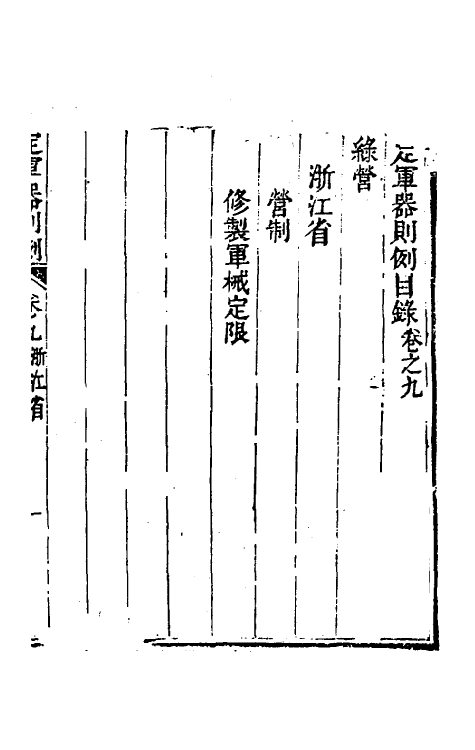 定軍器則例目錄卷之九
綠營
浙江省
營制
修製軍械定限
定軍器則例 卷九 浙江省 一